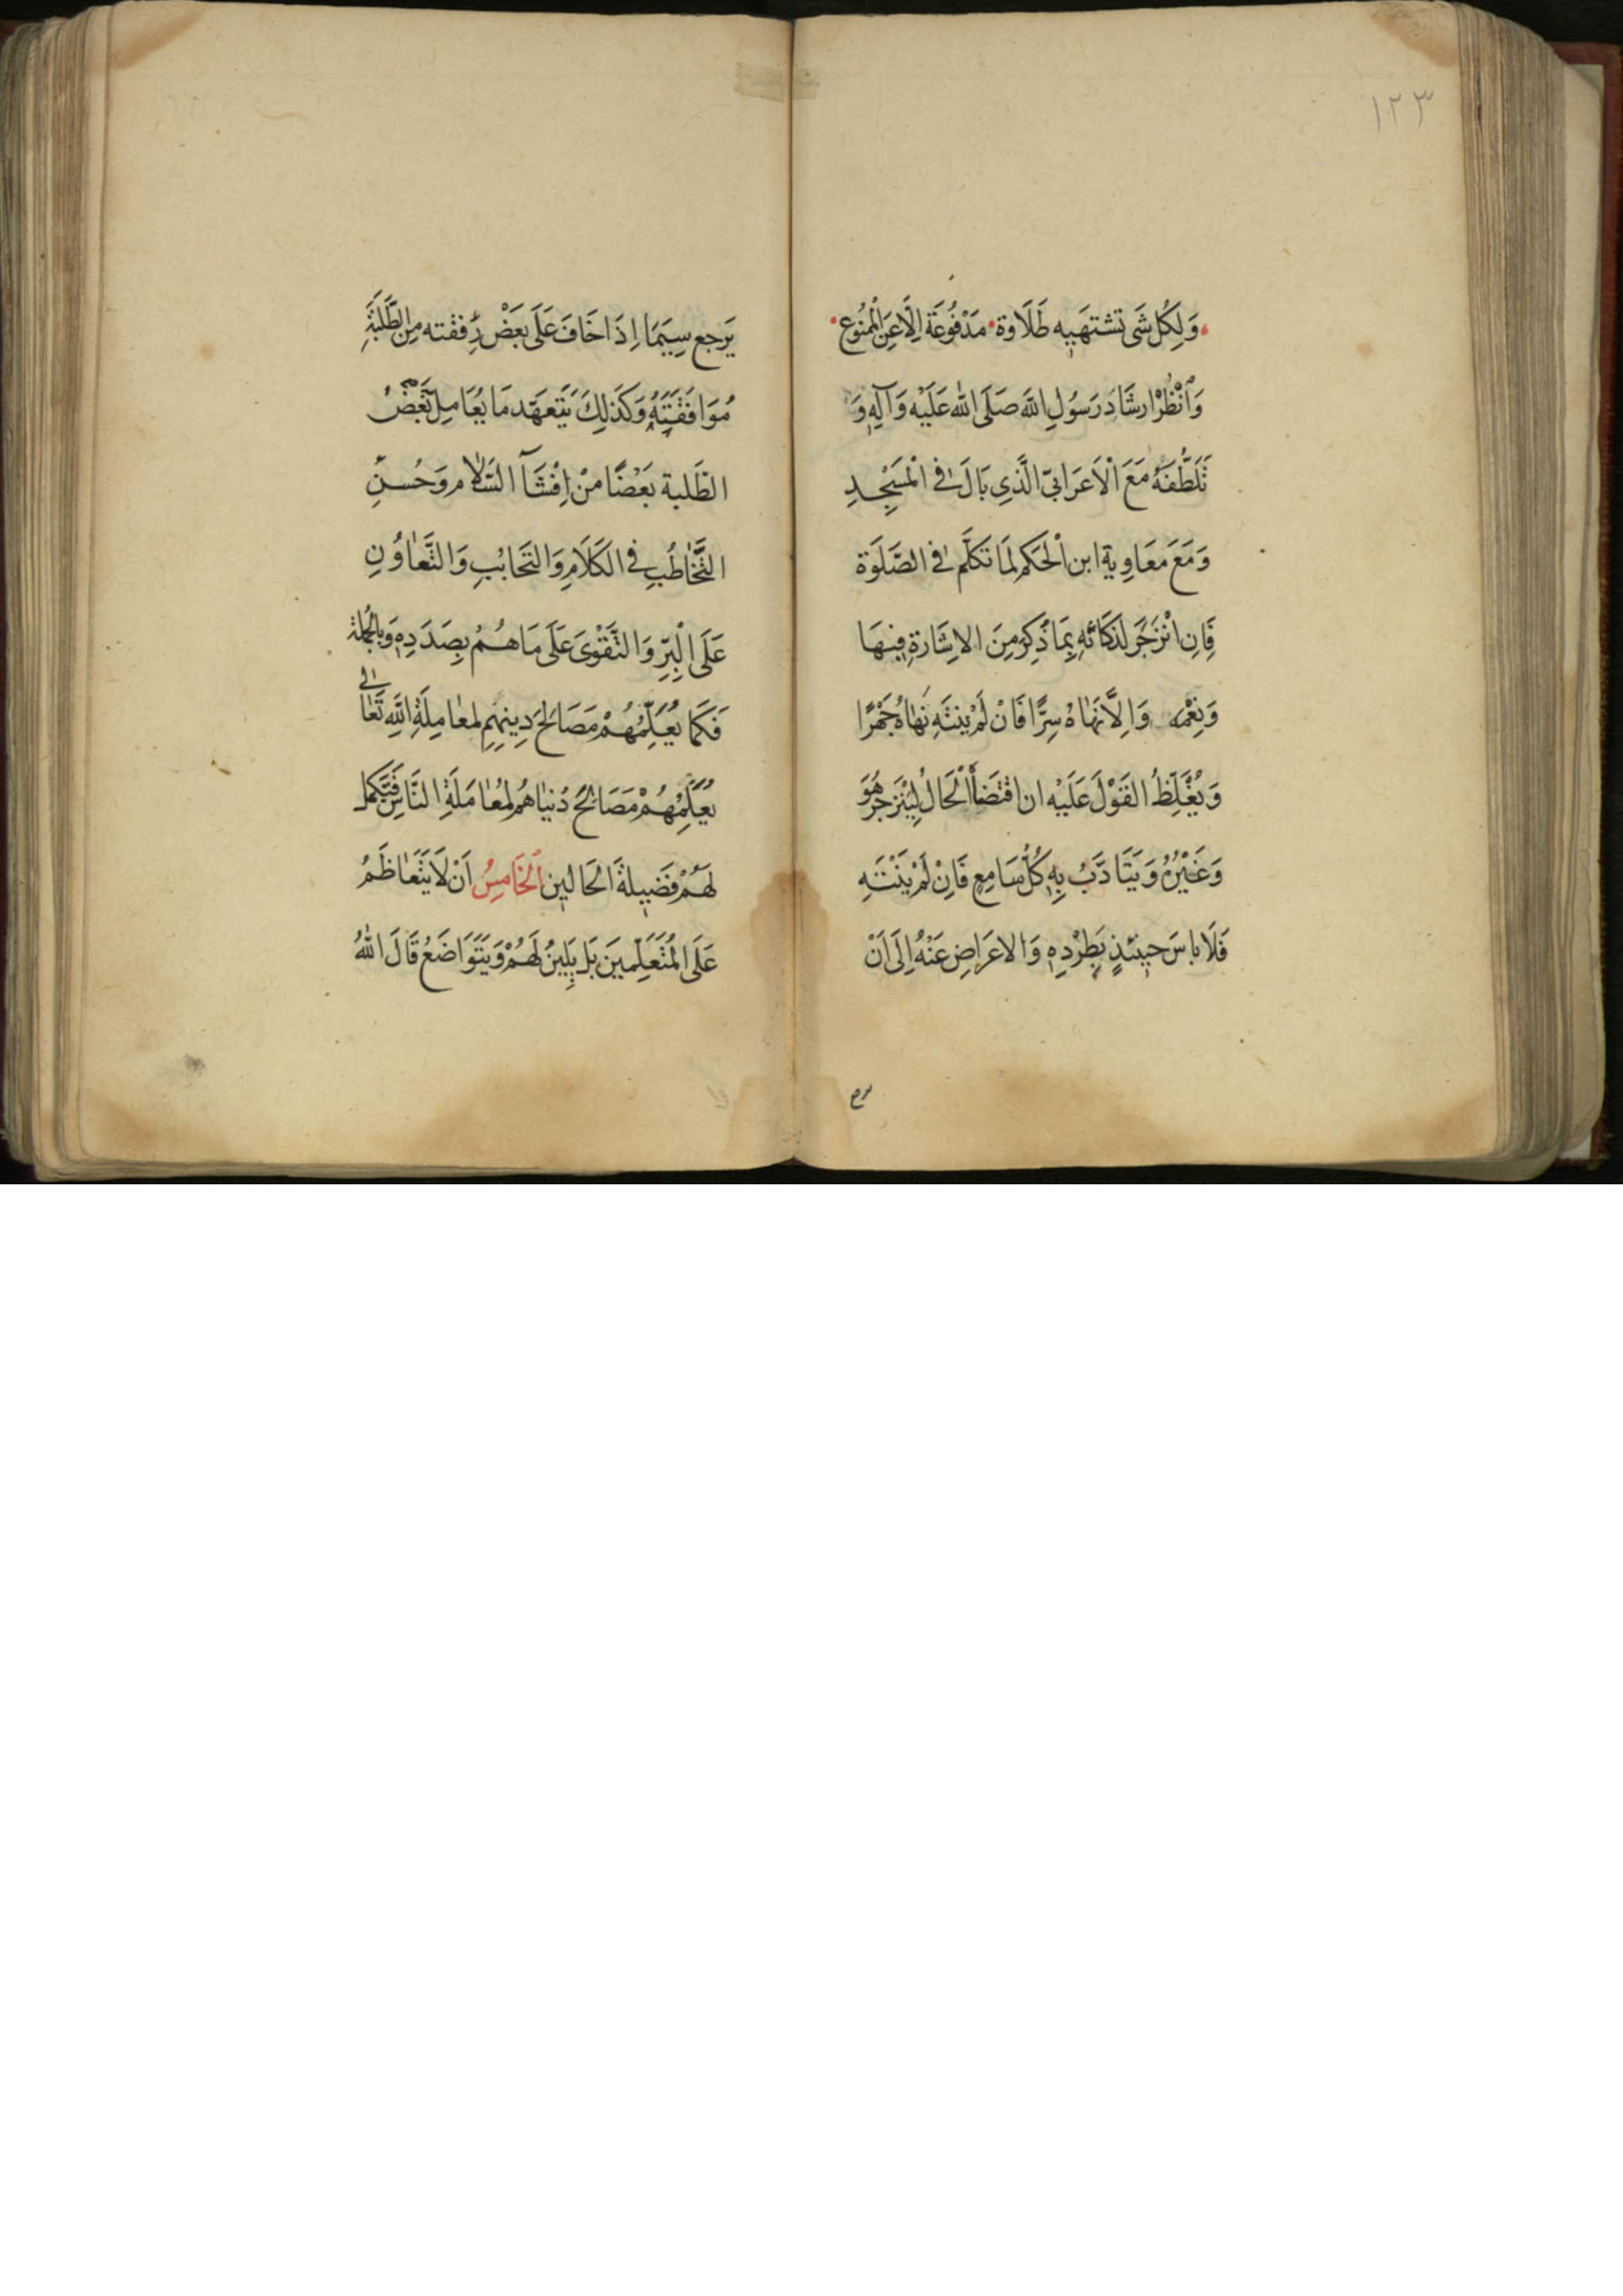 ١٢٣
وَلِكُلِ شَى تشتهَيه طَلَاوة مَدْفُوعَة اِلَّا عَنِ الْمَمْنُوعِ
وَانْظُرْ ارشَادَ رَسُولِ اللهِ صَلَى الله عَلَيْه وَآلِهِ وَ
تَلَطُّفَهُ مَعَ الْاَعَرَابىّ الَّذِي بَالَ فى الْمَسْجِدِ
وَمَعَ مَعَاوِية ابن الْحَكم لمَا تكلّم فى الصَّلَوة
فَاِن انْزَجَرَ لذَكَائهِ بِمَا ذُكِرَ مِنَ الاشَارة فيهَا
وَنِعْمه وَاِلَّا نَهَاهُ سِرًّا فَانْ لَمْ يَنتَهِ نَهَاهُ جَهْرًا
وَيُغَلِّظُ القَوْلَ عَلَيْه ان اقتضَا الْحَالُ لِيَنْزَجرَ هُوَ
وَغَيْرُهُ وَيَتَادَّبُ بِهِ كُلُّ سَامِعٍ فَاِنْ لَمْ يَنْتَهِ
فَلَا باسَ حينَئذٍ بِطرْدِهِ وَالاعَراضِ عَنْهُ اِلَى اَنْ
يَرجع سِيَمَا اِذَا خَافَ عَلَى بعَضْ رُفقته مِن الطَّلَبَةِ
مُوَافَقَتَهُ وَكَذلِكَ يَتَعهَّد مَا يُعَامِل بَعْضُ
الطَلبة بَعْضًا مْن اِفْشَآ السَّلام وَحُسنِ
التَّخَاطُبِ فى الكَلَامِ وَالتَحابُبِ وَالتَّعَاوُنِ
عَلَى الْبِرِّ وَالتَّقْوَى عَلَى مَا هُمُ بِصَدَدِهِ وَبِالجُملة
فَكَمَا يُعَلِّمُهُمْ مَصَالحَ دِينِهِم لمعَامِلَةِ اللهِ تَعَالى
يُعَلِّمُهُمْ مَصَالِحَ دُنيَاهُم لمُعَامَلَةِ النَّاسِ فَتَكمل
لَهُمْ فَضيلة اَلحَالين اَلخَامِسُ اَنْ لَا يَتَعَاظَمُ
عَلَى المُتَعَلِّمينَ بَل يَلِينُ لَهُمْ وَيَتَوَاضَعُ قَالَ اللهُ